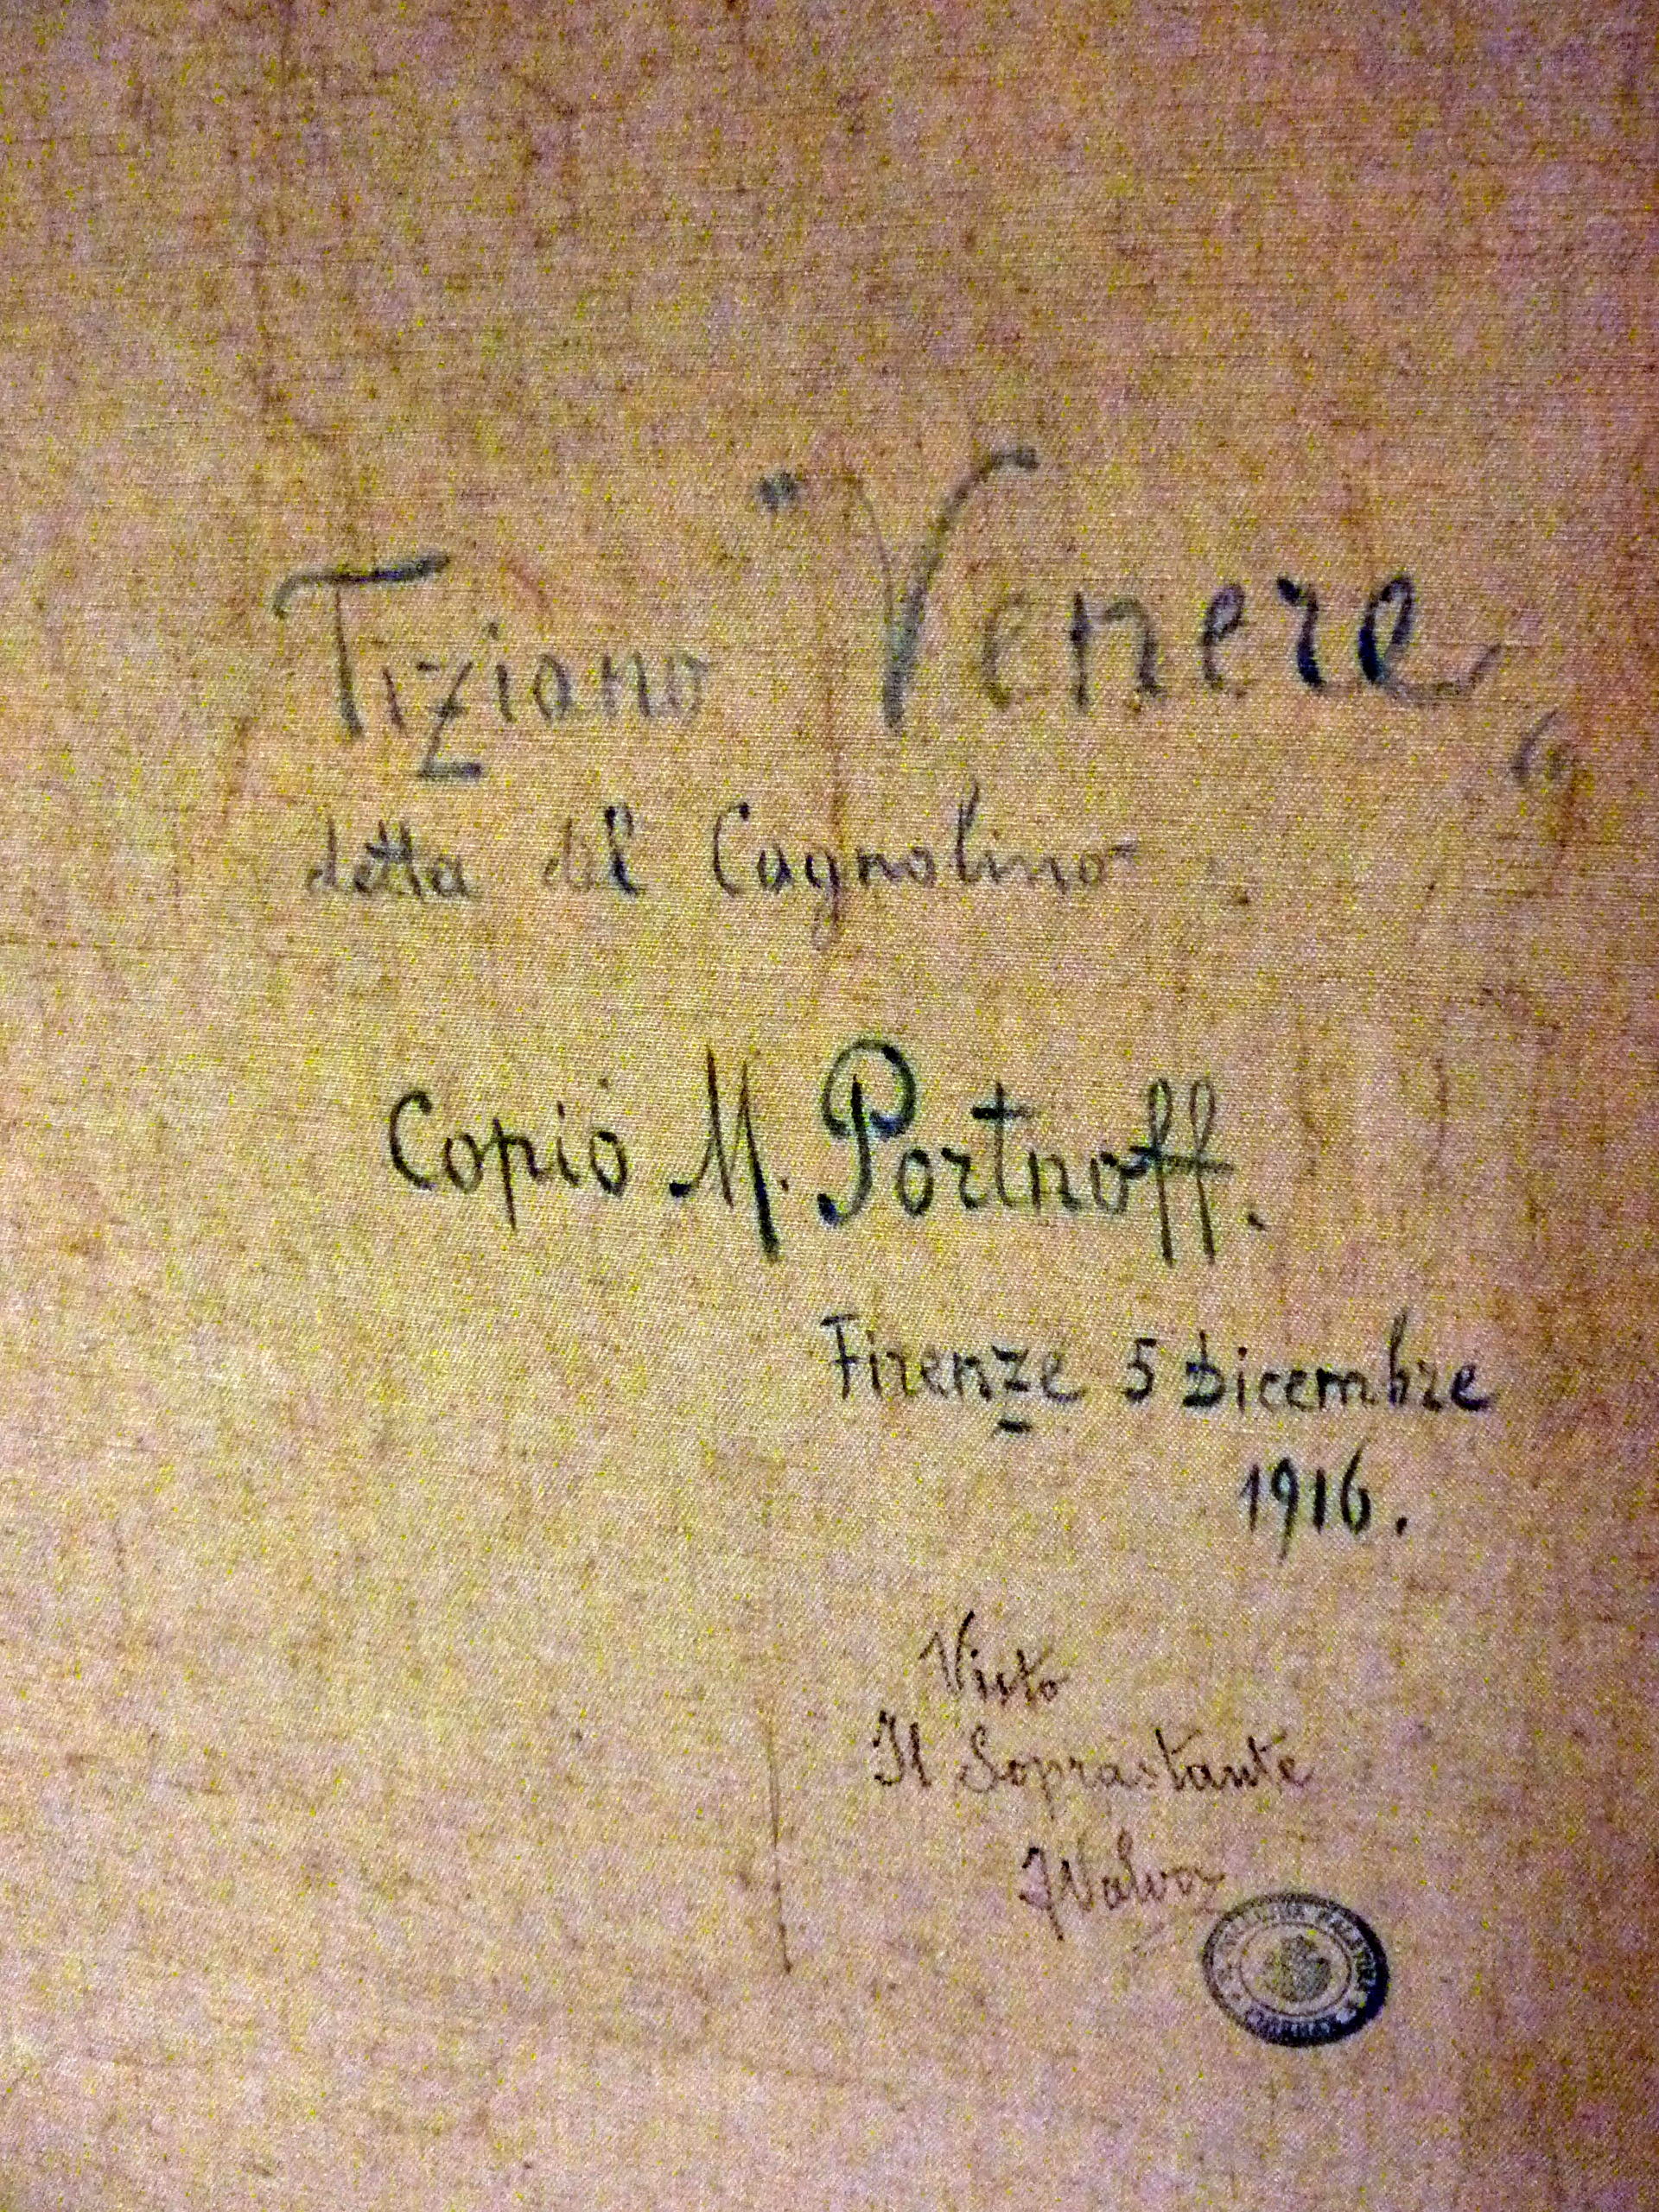 Tiziano "Venere"
detta del Cagnolino
Copiò M. Portnoff.
Firenze 5 Dicembre
1916.
Visto
Il Soprastante